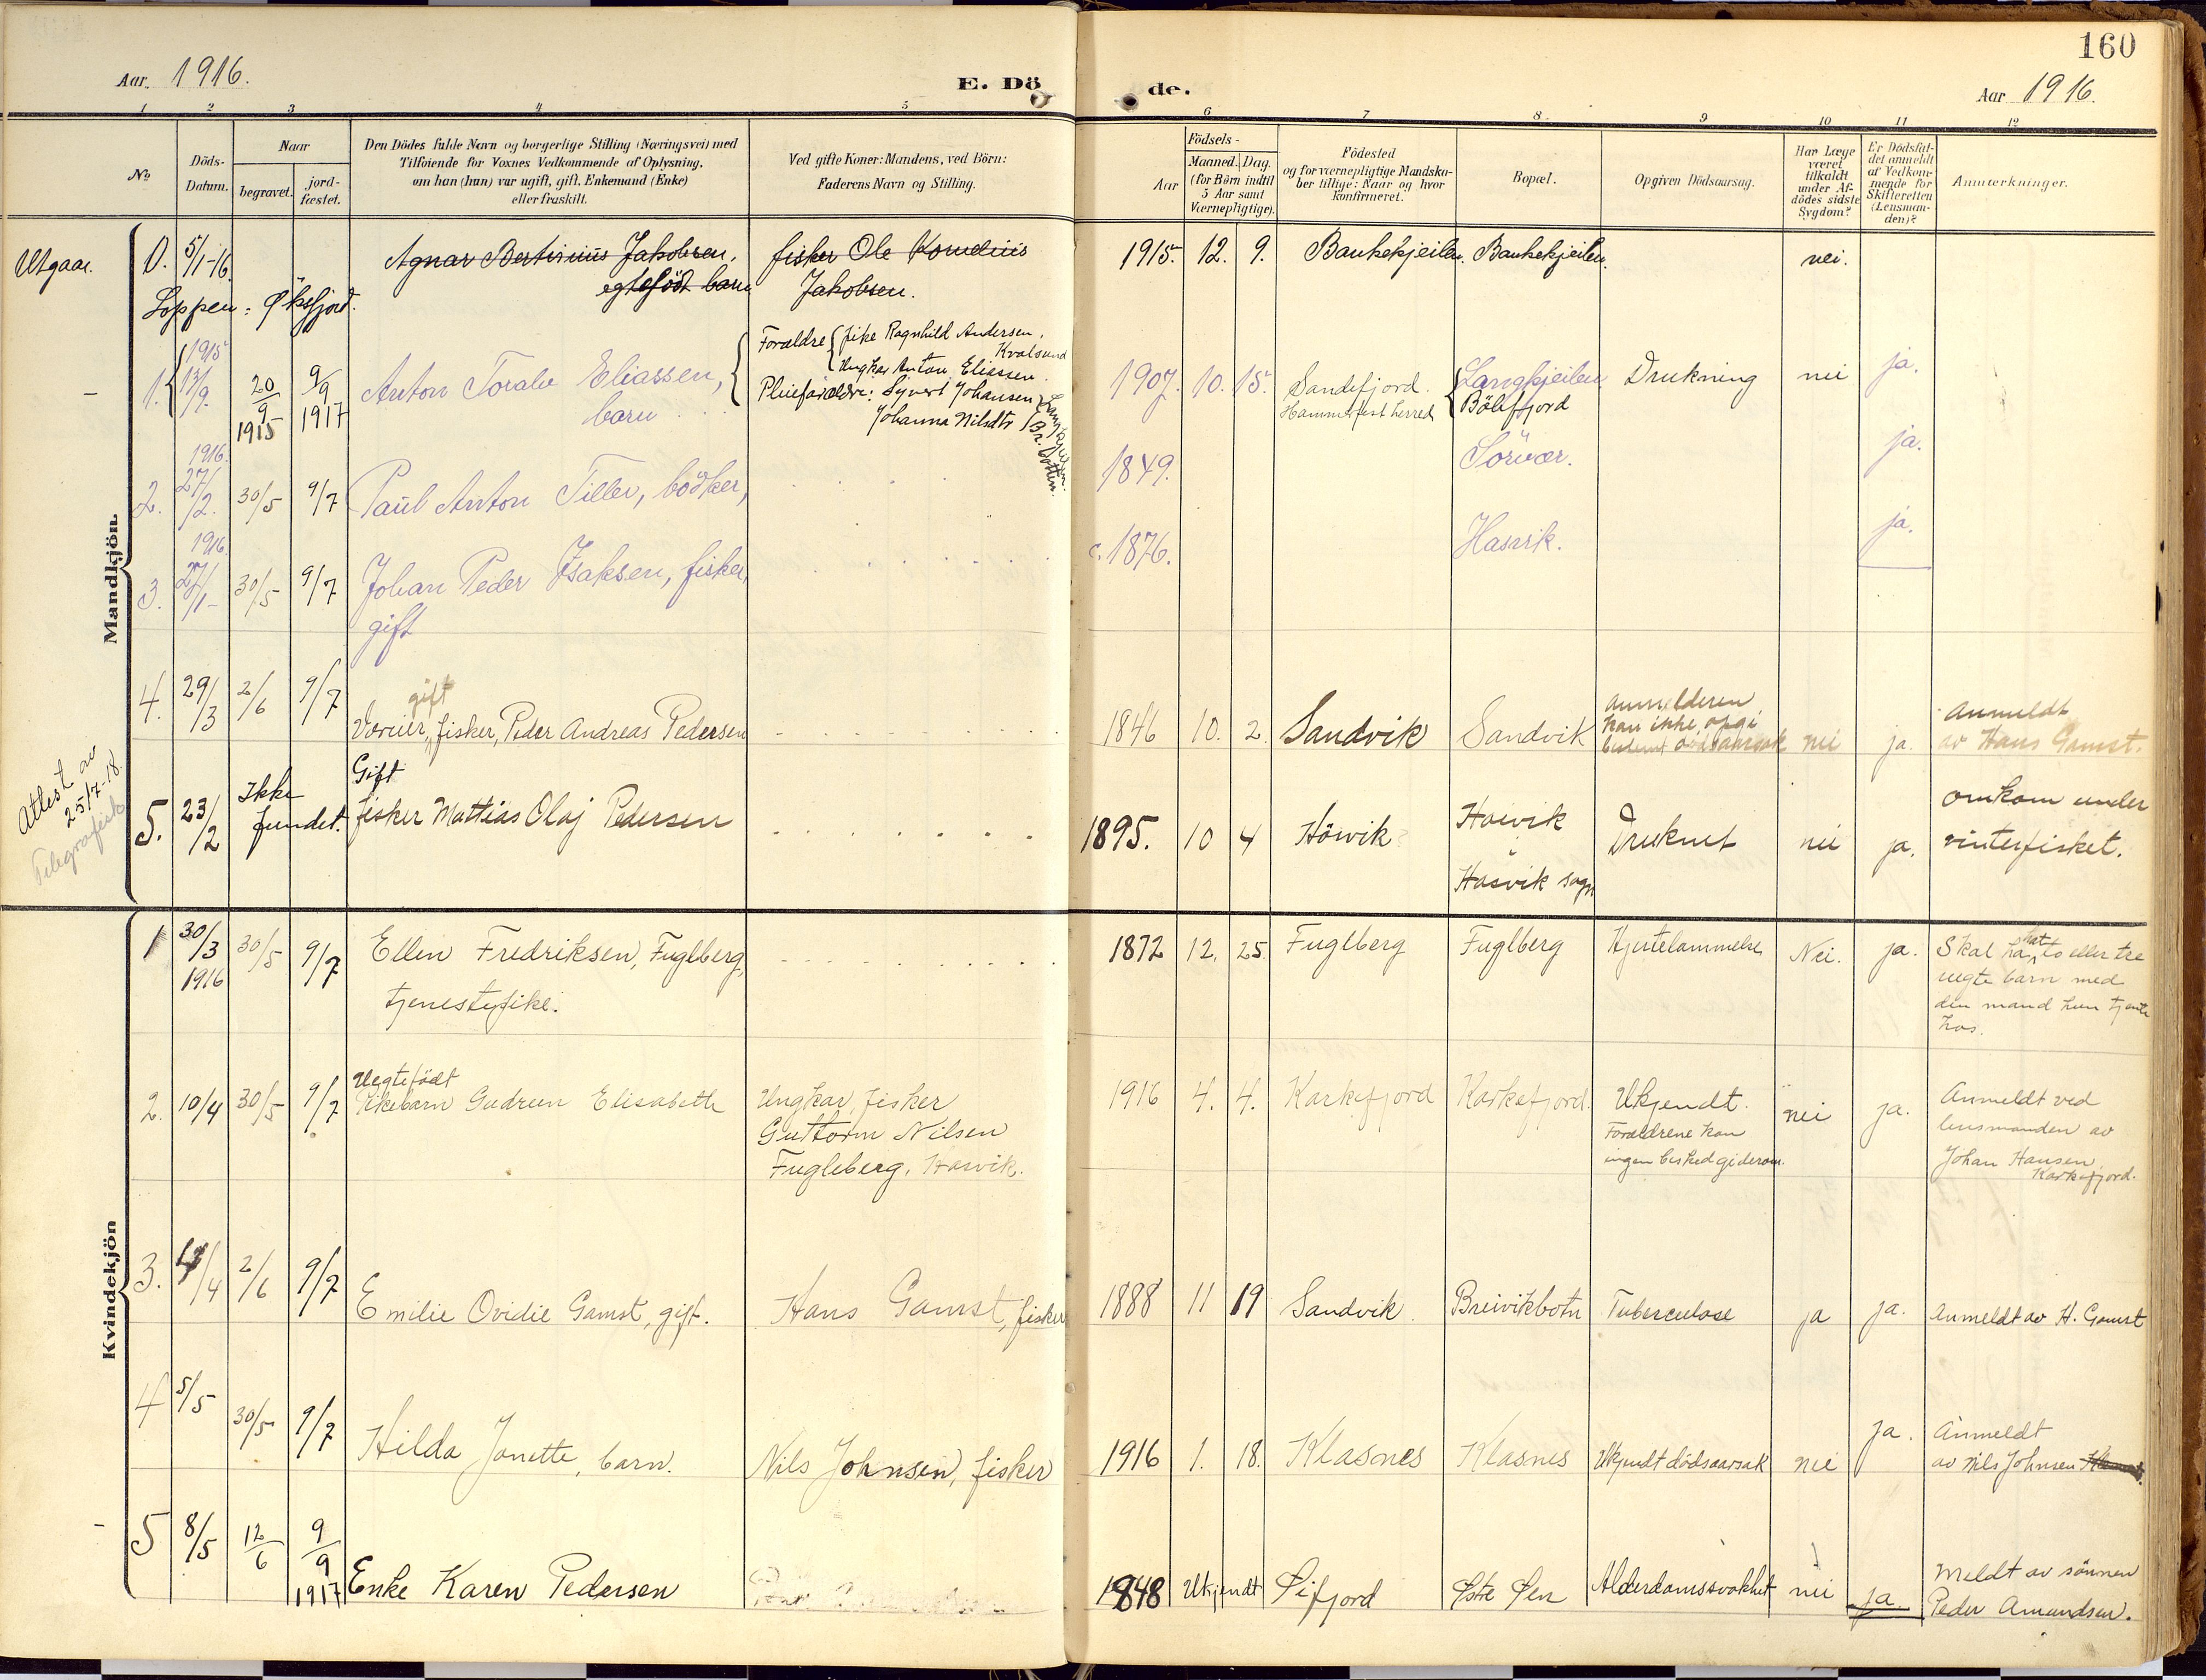 160
Aar 1916.
E. Dö de.
Aar 1916.
1 2 3 4 5 6 7 8 9 10 11 12
No
Döds-Datum.
Naar
begravet.
jord-fæstet.
Den Dödes fulde Navn og borgerlige Stilling (Næringsvei) med
Tilföiende for Voxnes Vedkommende af Oplysning,
om han (hun) var ugift, gift, Enkemand (Enke)
eller fraskilt.
Ved gifte Koner: Mandens, ved Börn:
Faderens Navn og Stilling.
Födsels-
Aar
Maaned. Dag.
(for Börn indtil
5 Aar samt
Værnepligtige).
Födested
og for værnepligtige Mandska-
ber tillige: Naar og hvor
konfirmeret.
Bopæl.
Opgiven Dödsaarsag.
Har Læge
været
tilkaldt
under Af-
dödes sidste
Sygdom?
Er Dödsfal-
det anmeldt
af Vedkom-
mende for
Skifteretten
(Lensman-
den)?
Anmærkninger.
Mandkjön.
Utgaar.
0. 5/1-16 Agnar Bertinius Jakobsen, fisker Ole Kornelius 1915 12. 9. Bankekjeilen. Bankekjeilen. nei.
egtefödt barn Jakobsen.
Loppen: Øksfjord.
Forældre { pike Ragnhild Andersen, Kvalsund
Ungkar Anton Eliassen.
1. 1915 13/9. 20/9 1915 9/9 1917 Anton Toralv Eliassen, Pleieforældre: Sivert Johansen 1907. 10. 15. Sandefjord. Langkjeilen Drukning nei ja.
barn Johanna Nilsdtr Hammerfest herred Bölefjord
2. 1916. 27/2. 30/5 9/7 Paul Anton Tiller, bödker, 1849. Sörvær. ja.
3. 1916. 27/1- 30/5 9/7 Johan Peder Isaksen, fisker, c. 1876. Hasvik. ja.
gift
4. 29/3 2/6 9/7 gift
fisker, Peder Andreas Pedersen 1846 10. 2. Sandvik Sandvik anmelderen
kan ikke opgi
bestemt dödsaarsak nei ja. Anmeldt
av Hans Gamst.
Attest av
25/7-18.
Telegrafisk
5. 23/2 Ikke
fundet. Gift
fisker Mattias Olaj Pedersen 1895. 10 4 Hövik Haivik
Hasvik sogn Druknet nei ja. omkom under
vinterfisket.
Kvindekjön
1 30/3 1916 30/5 9/7 Ellen Fredriksen, Fuglberg, 1872 12. 25. Fuglberg Fuglberg Hjertelammelse Nei. ja. Skal ha hat to eller tre
tjenestepike. uegte barn med
den mand hun tjente
hos.
2. 10/4 30/5 9/7 Uegtefödt
Pikebarn Gudrun Elisabeth Ungkar, fisker
Guttorm Nilsen
Fugleberg, Hasvik. 1916 4. 4. Karkefjord Karkefjord. Ukjendt.
Forældrene kan
ingen besked gi derom. nei ja. Anmeldt ved
lensmanden av
Johan Hansen,
Karkefjord.
3. 14/4 2/6 9/7 Emilie Ovidie Gamst, gift. Hans Gamst, fisker 1888 11 19 Sandvik. Breivikbotn Tuberculose ja ja. Anmeldt av H. Gamst
4 5/5 30/5 9/7 Hilda Janette, barn. Nils Johnsen, fisker 1916 1. 18. Klasnes Klasnes Ukjendt dödsaarsak nei ja. Anmeldt
av Nils Johnsen
5 8/5 12/6 9/9 1917 Enke Karen Pedersen 1848 Ukjendt Øifjord Østre Øen Alderdomssvakhet nei ja. Meldt av sönnen
Peder Amundsen.